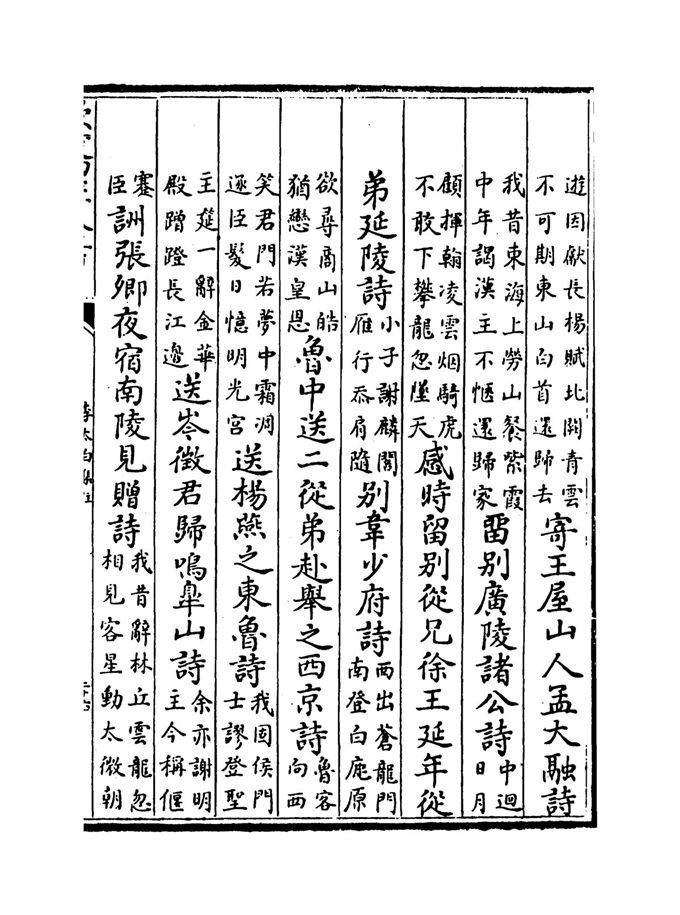 遊因獻長楊賦北闕青雲
不可期東山白首還歸去
寄王屋山人孟大融詩
我昔東海上勞山餐紫霞
中年謁漢主不愜還歸家
留別廣陵諸公詩
中迴
日月
顧揮翰凌雲烟騎虎
不敢下攀龍忽墜天
感時留別從兄徐王延年從
弟延陵詩
小子謝麟閣
雁行忝肩隨
別韋少府詩
西出蒼龍門
南登白鹿原
欲尋商山皓
猶戀漢皇恩
魯中送二從弟赴舉之西京詩
魯客
向西
笑君門若夢中霜凋
逐臣髮日憶明光宮
送楊燕之東魯詩
我固侯門
士謬登聖
主筵一辭金華
殿蹭蹬長江邊
送岑徵君歸鳴臯山詩
余亦謝明
主今稱偃
蹇
臣
詶張卿夜宿南陵見贈詩
我昔辭林丘雲龍忽
相見客星動太微朝
李太白集注